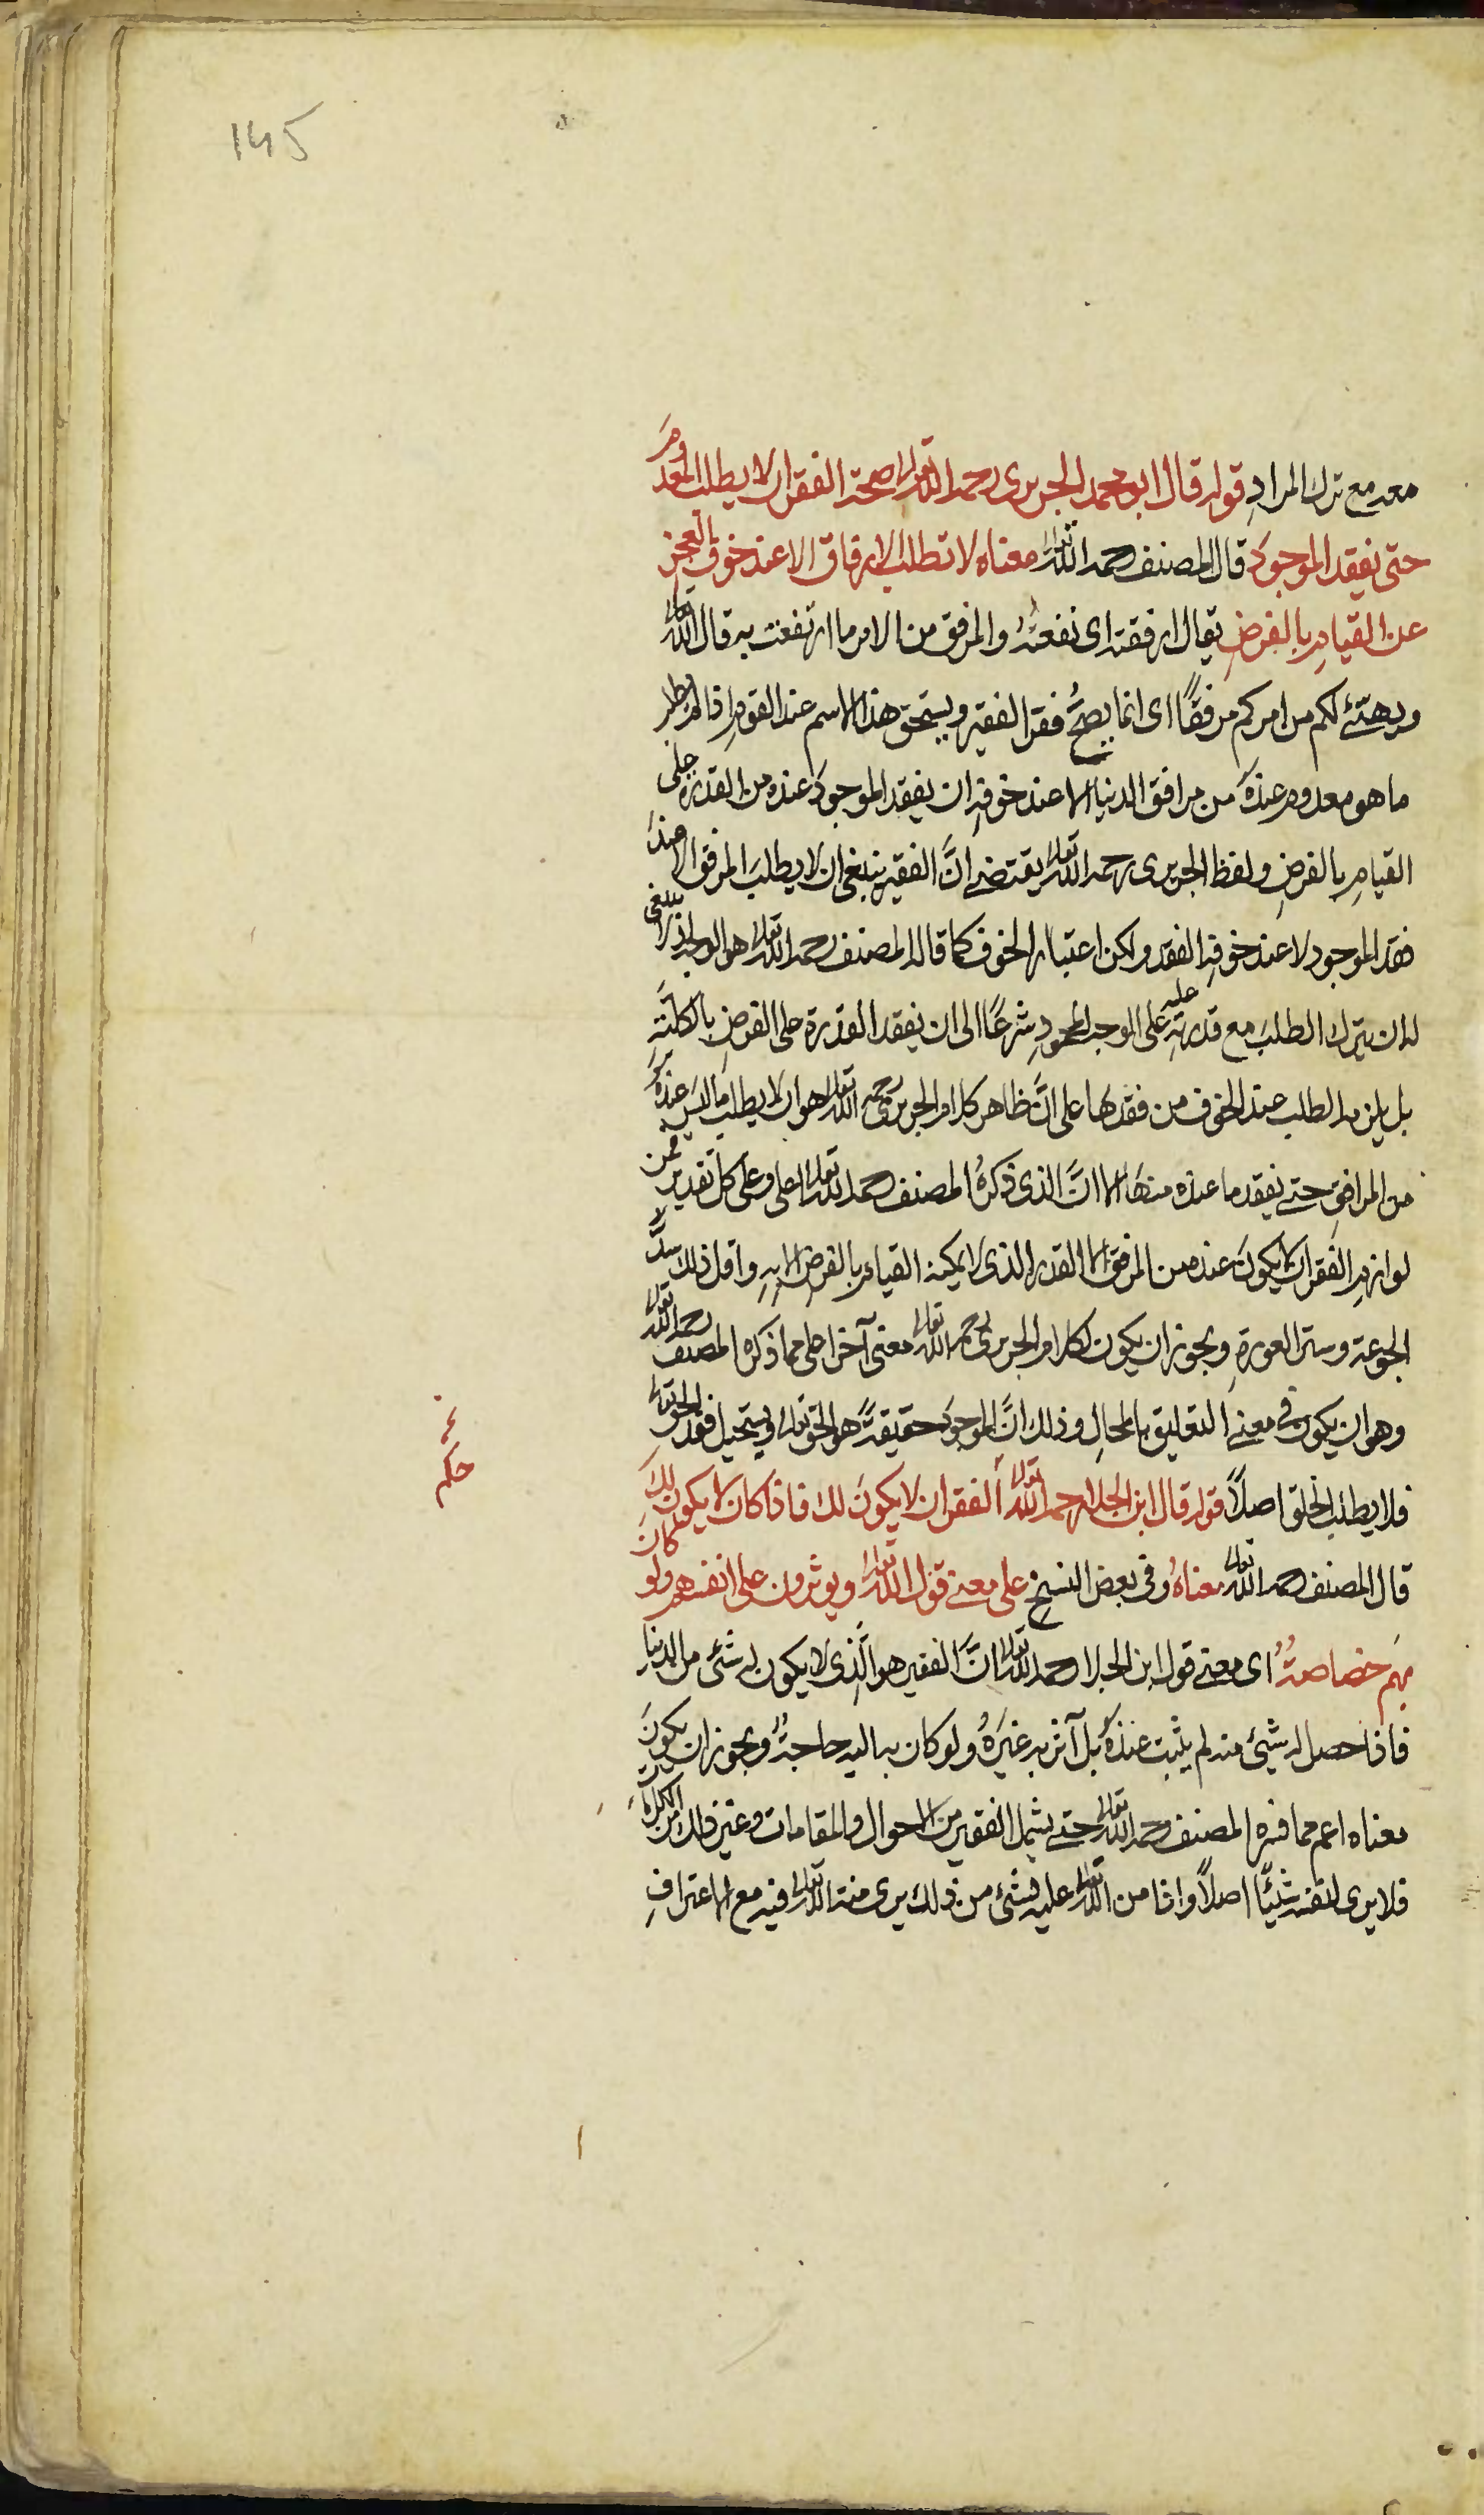 145
معه مع ترك المراد قوله قال ابو محمد الجريرى رحمه الله تعالى صحة الفقر ان لا يطلب المعدوم
حتى يفقد الموجود قال المصنف رحمه الله تعالى معناه لا تطلب الارفاق الا عند خوف العجز
عن القيام بالفرض يقال ارفقته اى نفعته والمرفق من الامر ما ارتفعت به قال الله تعالى
ويهيئ لكم من امركم مرفقا اى انما يصح فقر الفقير ويستحق هذا الاسم عند القوم اذا لم يطلب
ما هو معدوم عنده من مرافق الدنيا الا عند خوفه ان يفقد الموجود عنده من القدرة على
القيام بالفرض ولفظ الجريرى رحمه الله تعالى يقتضى ان الفقير ينبغى ان لا يطلب المرفق الا عند
فقد الموجود لا عند خوفه الفقد ولكن اعتبار الخوف كما قاله المصنف رحمه الله تعالى هو الوجه اذ لا ينبغى
له ان يترك الطلب مع قدرته عليه على الوجه المحمود شرعا الى ان يفقد القدرة على الفرض بالكلية
بل يلزمه الطلب عند الخوف من فقدها على ان ظاهر كلام الجريرى رحمه الله تعالى هو ان لا يطلب ما ليس عنده
من المرافق حتى يفقد ما عنده منها الا ان الذى ذكره المصنف رحمه الله تعالى اعلى وعلى كل تقدير فمن
لوازم الفقر ان لا يكون عنده من المرفق الا القدر الذى لا يمكنه القيام بالفرض الا به واقل ذلك سد
الجوعة وستر العورة ويجوز ان يكون لكلام الجريرى رحمه الله تعالى معنى آخر اعلى مما ذكره المصنف رحمه الله تعالى
وهو ان يكون فى معنى التعليق بالمحال وذلك ان الموجود حقيقة هو الحق تعالى ويستحيل فقد الحق تعالى
فلا يطلب الخلق اصلا قوله قال ابن الجلا رحمه الله تعالى الفقر ان لا يكون لك فاذا كان لا يكون لك
قال المصنف رحمه الله تعالى معناه وفى بعض النسخ على معنى قول الله تعالى ويوثرون على انفسهم ولو كان
بهم خصاصة اى معنى قول ابن الجلا رحمه الله تعالى ان الفقير هو الذى لا يكون له شئ من الدنيا
فاذا حصل له شئ منه لم يثبت عنده بل آثر به غيره ولو كان به اليه حاجة ويجوز ان يكون
معناه اعم مما فسره المصنف رحمه الله تعالى حتى يشمل الفقير من الاحوال والمقامات وغير ذلك من الكمالات
فلا يرى لنفسه شيئا اصلا واذا من الله تعالى عليه بشئ من ذلك يرى منة الله تعالى فيه مع الاعتراف